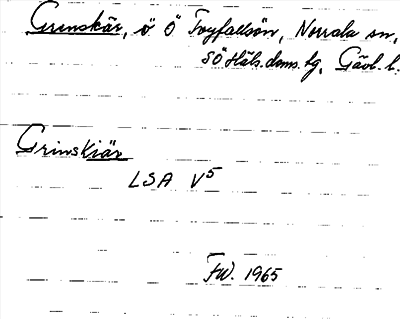 Grinskär, ö Ö Tvyfallsön, Norrala sn,
SÖ Häls. doms. tg, Gävl. l.
Grinskiär
LSA V5
FW. 1965